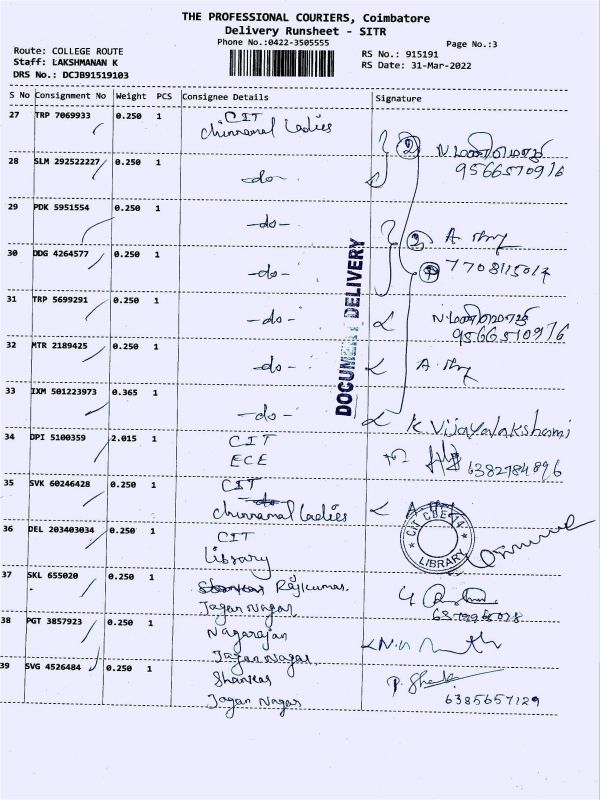 THE PROFESSIONAL COURIERS, Coimbatore
Delivery Runsheet - SITR
Phone No.:0422-3505555
Page No.:3
Route: COLLEGE ROUTE
Staff: LAKSHMANAN K
DRS No.: DCJB91519103
RS No.: 915191
RS Date: 31-Mar-2022
S No Consignment No Weight PCS Consignee Details Signature
27 TRP 7069933 0.250 1 CIT
Chinnamal Ladies
28 SLM 292522227 0.250 1 -do-
9566510976
29 PDK 5951554 0.250 1 -do-
30 DDG 4264577 0.250 1 -do-
31 TRP 5699291 0.250 1 -do-
9566510976
32 MTR 2189425 0.250 1 -do-
33 IXM 501223973 0.365 1 -do- K Vijayalakshmi
34 DPI 5100359 2.015 1 CIT
ECE 6382784896
35 SVK 60246428 0.250 1 CIT
Chinnamal Ladies
36 DEL 203403034 0.250 1 CIT
Library
37 SKL 655020 0.250 1 Rajkumar.
Jagan Nagar
38 PGT 3857923 0.250 1 Nagarajan
Jagan Nagar
39 SVG 4526484 0.250 1 Shankar
Jagan Nagar 6385657129
DOCUMENT DELIVERY
LIBRARY